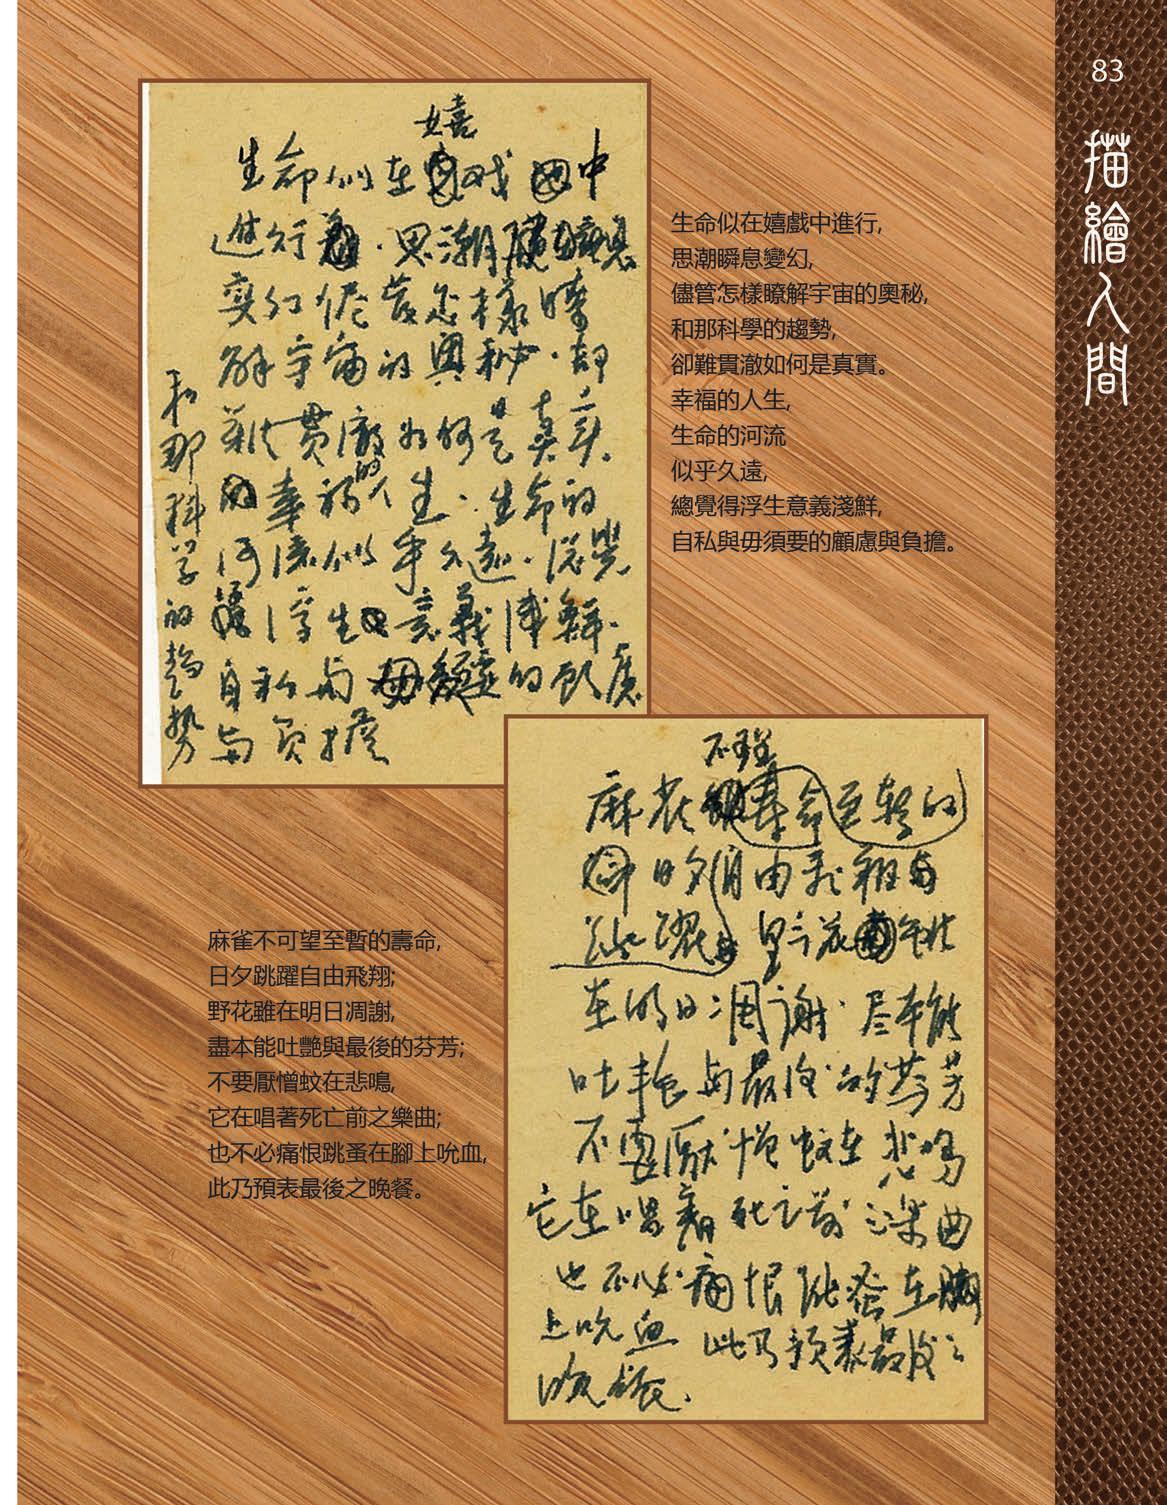 83
描繪人間
嬉
生命似在戏中
進行．思潮瞬息
变幻侭管怎樣瞭
解宇宙的奧秘．却
难貫澈如何是真实．
和那科学的趨势
幸福的人生．生命的
河流似乎久遠．总觉
得浮生意義浅鮮．
自私与毋須要的顾慮
与負担
生命似在嬉戲中進行,
思潮瞬息變幻,
儘管怎樣瞭解宇宙的奧秘,
和那科學的趨勢,
卻難貫澈如何是真實。
幸福的人生,
生命的河流
似乎久遠,
總覺得浮生意義淺鮮,
自私與毋須要的顧慮與負擔。
麻雀不可望至暫的壽命,
日夕跳躍自由飛翔;
野花雖在明日凋謝,
盡本能吐艷與最後的芬芳;
不要厭憎蚊在悲鳴,
它在唱著死亡前之樂曲;
也不必痛恨跳蚤在腳上吮血,
此乃預表最後之晚餐。
麻雀寿命至暂的
日夕自由飛翔与
跳躍野花虽
在明日凋謝．尽本能
吐艳与最後的芬芳
不要厭憎蚊在悲鳴
它在唱着死亡前之楽曲
也不必痛恨跳蚤在脚
上吮血 此乃預表最後之
晚餐．